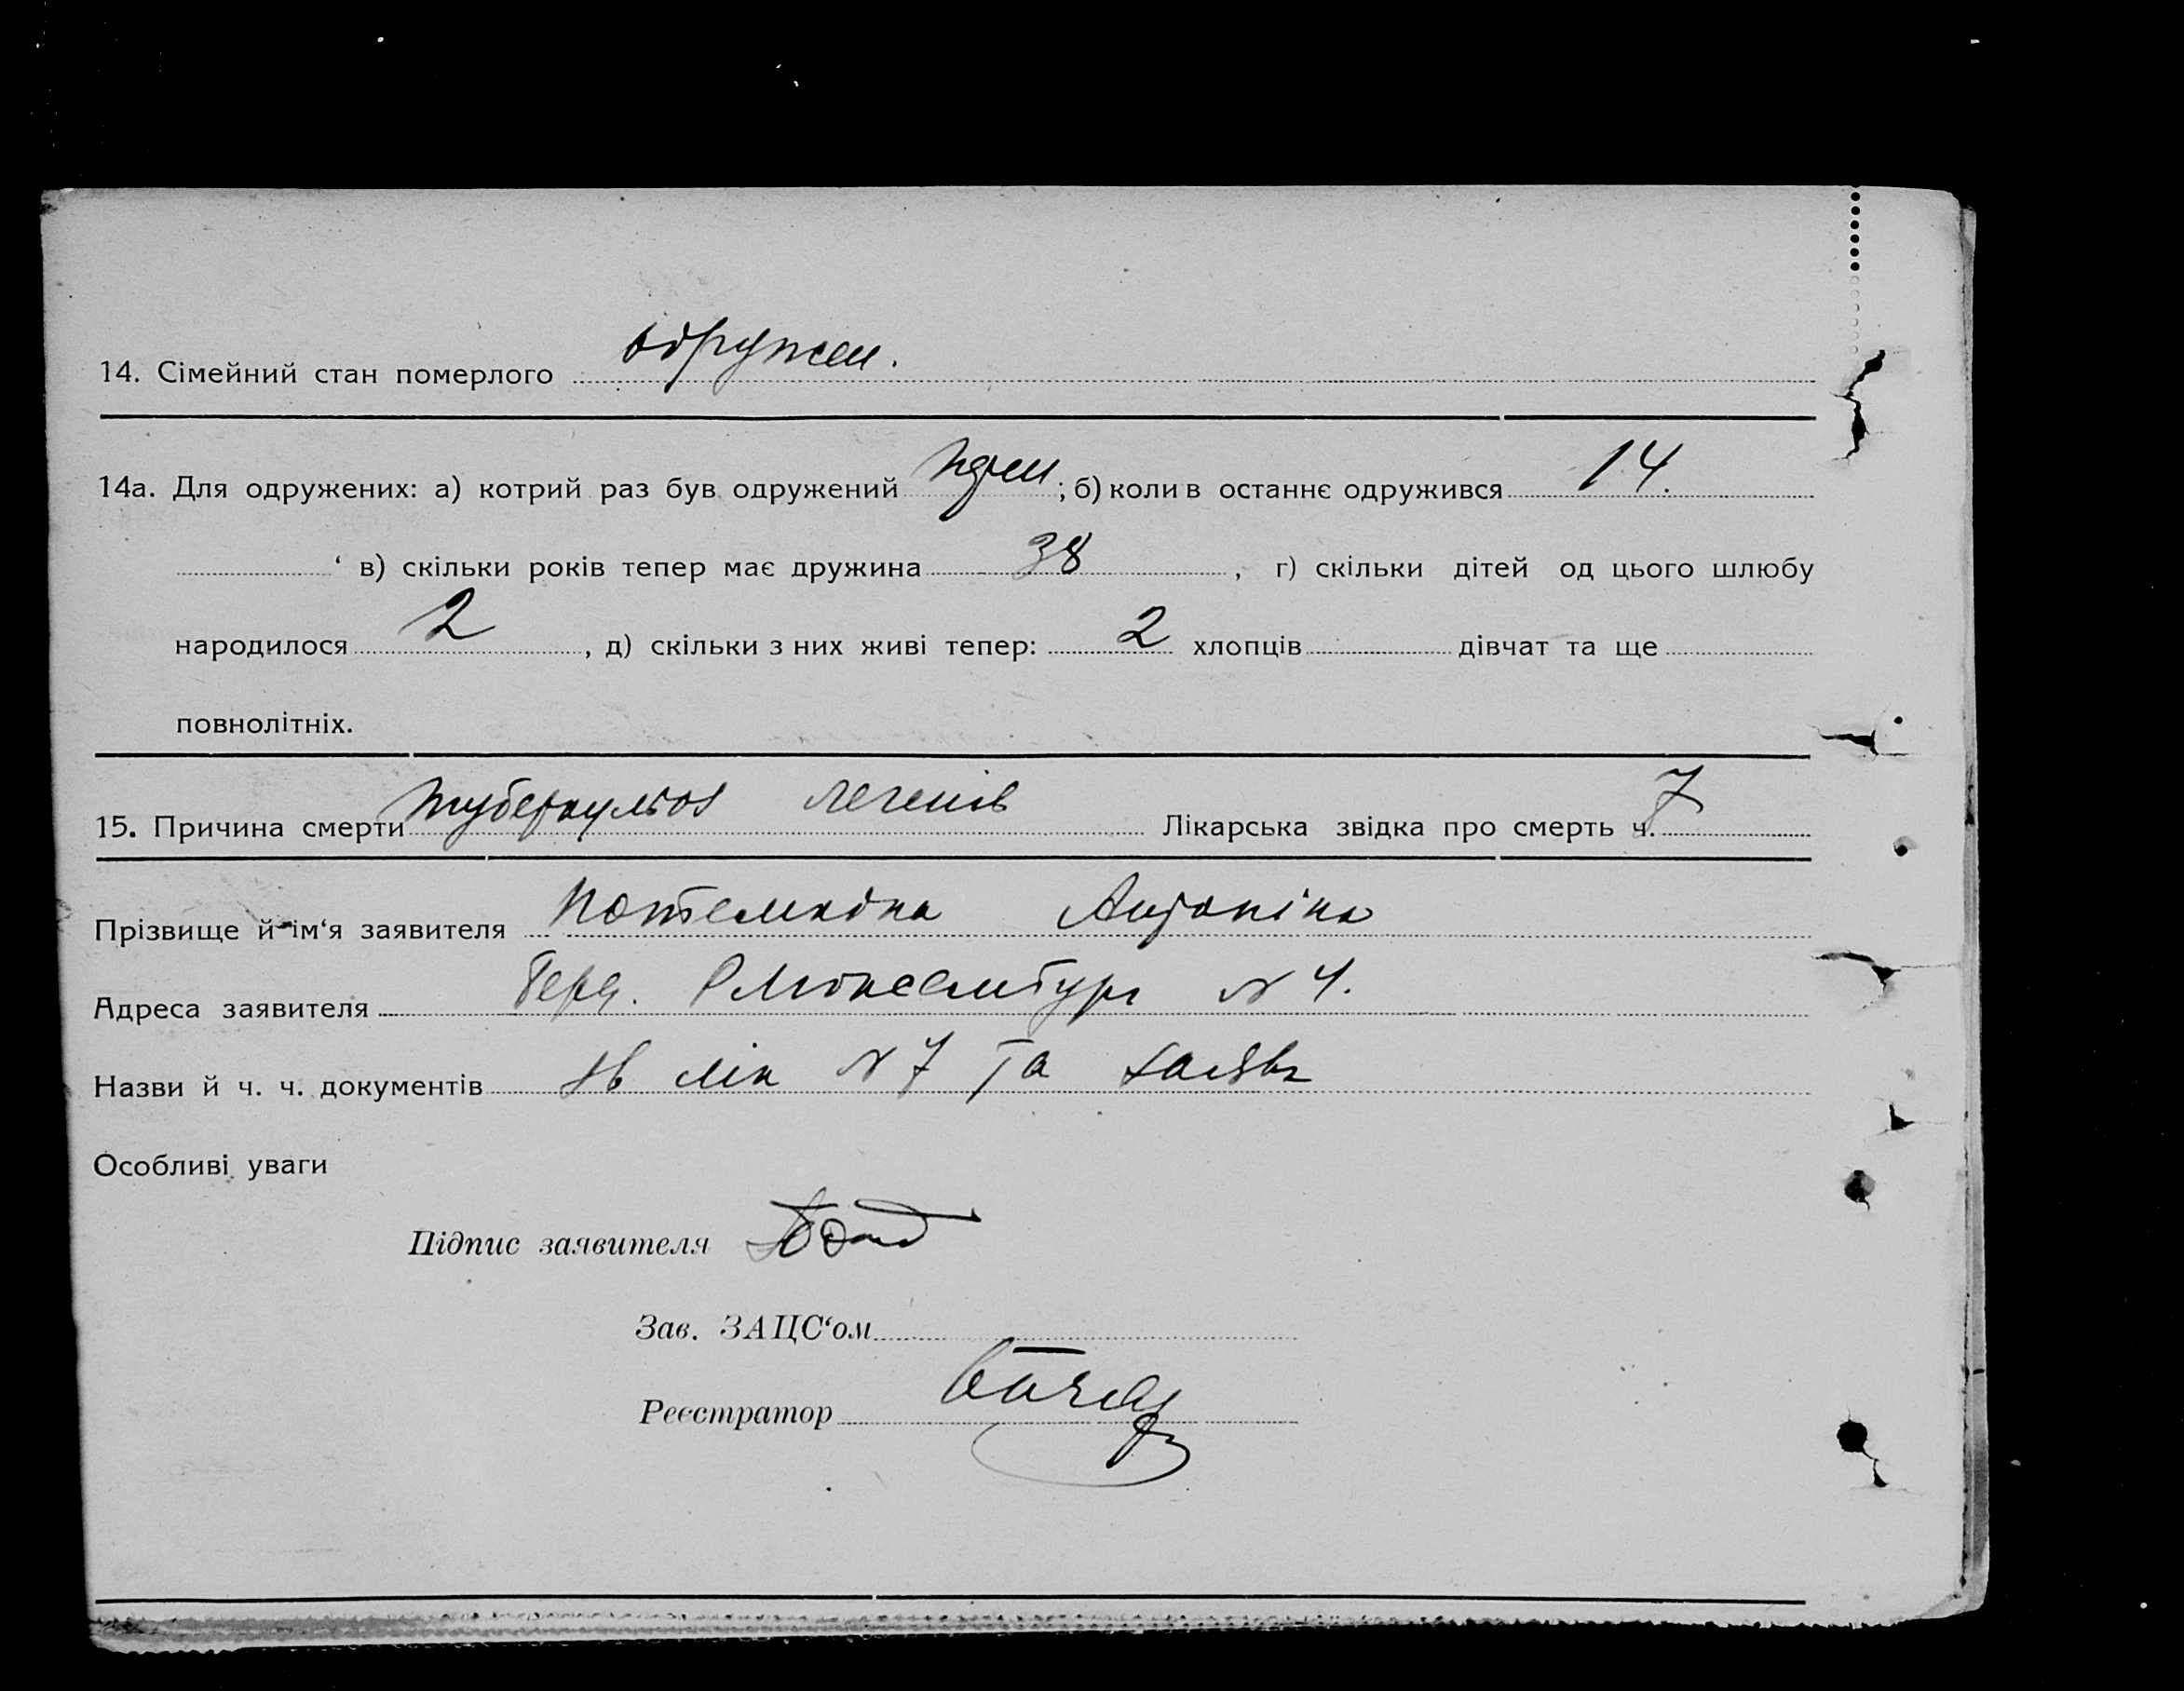 14. Сімейний стан померлого одружен.
14а. Для одружених: а) котрий раз був одружений перш ; б) коли в останнє одружився 14.
‘ в) скільки років тепер має дружина 38 , г) скільки дітей од цього шлюбу
народилося 2 , д) скільки з них живі тепер: 2 хлопців дівчат та ще
повнолітніх.
15. Причина смерти туберкульоз легенів Лікарська звідка про смерть ч. 7
Прізвище й ім‘я заявителя Антоніна
Адреса заявителя Р Люксембург № 4.
Назви й ч. ч. документів зв лік № 7 та заява
Особливі уваги
Підпис заявителя
Зав. ЗАЦС‘ом
Реєстратор